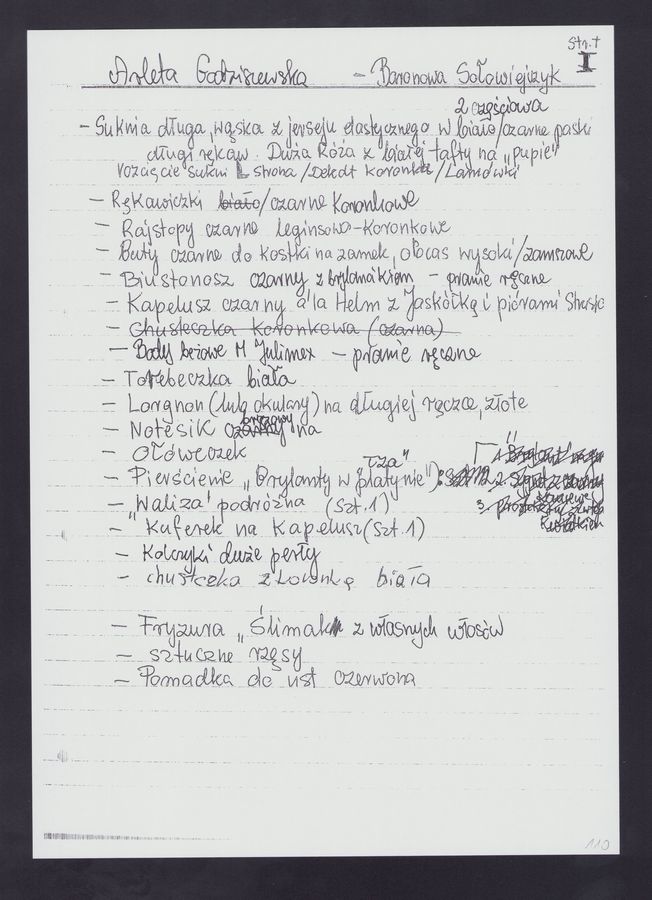 Str. 1
I
Arleta Godziszewska - Baronowa Sołowiejczyk
2 częściowa
- Suknia długa, wąska z jerseju elastycznego w biało/czarne paski
długi rękaw. Duża Róża z białej tafty na "pupie"
rozcięcie sukni L strona /Dekolt koronka/Lamówki
- Rękawiczki biało/czarne Koronkowe
- Rajstopy czarne leginsowo-koronkowe
- Buty czarne do kostki na zamek, obcas wysoki/zamszowe
- Biustonosz czarny z brylancikiem - pranie ręczne
- Kapelusz czarny a'la Helm z Jaskółką i piórami Strusia
- Chusteczka Koronkowa (czarna)
- Body beżowe M Julimex - pranie ręczne
- Torebeczka biała
- Lorgnon (lub okulary) na długiej rączce, złote
brązowy
- Notesik czarny na
- Ołóweczek
"Łza"
- Pierścienie "Brylanty w platynie"):
- "Waliza" podróżna (szt. 1)
- "Kuferek na Kapelusz (szt. 1)
- Kolczyki duże perły
- chusteczka z koronką biała
- Fryzura "Ślimak z własnych włosów
- sztuczne rzęsy
- Pomadka do ust czerwona
110